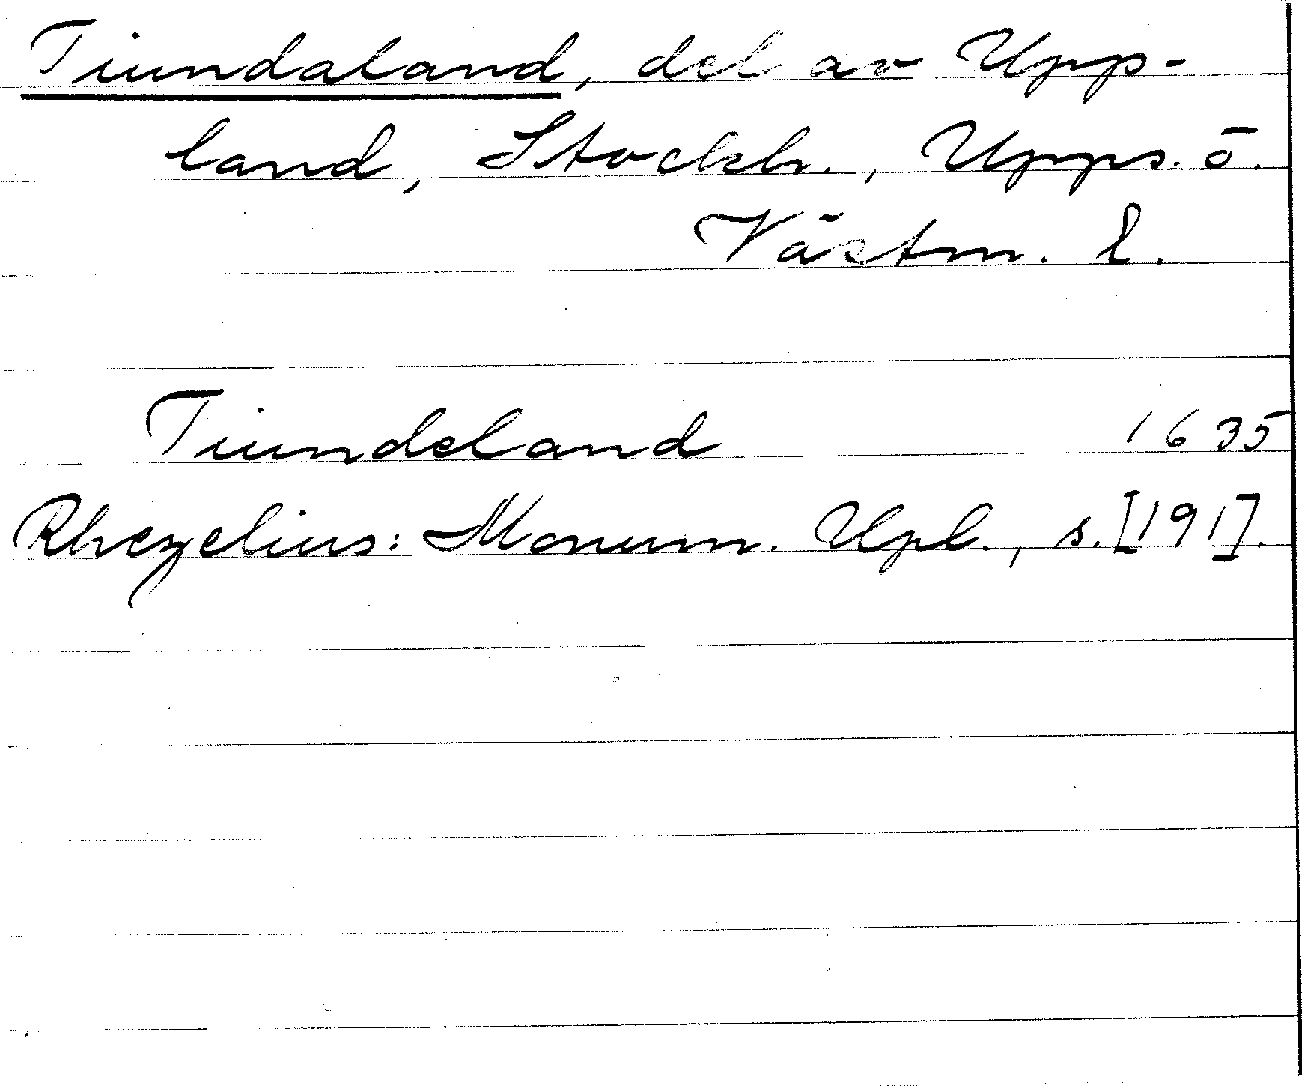 Tiundaland, del av Upp-
land, Stockh., Upps. o.
Västm. l.
Tiundeland 1635
Rhezelius: Monum. Upl., s. [191].